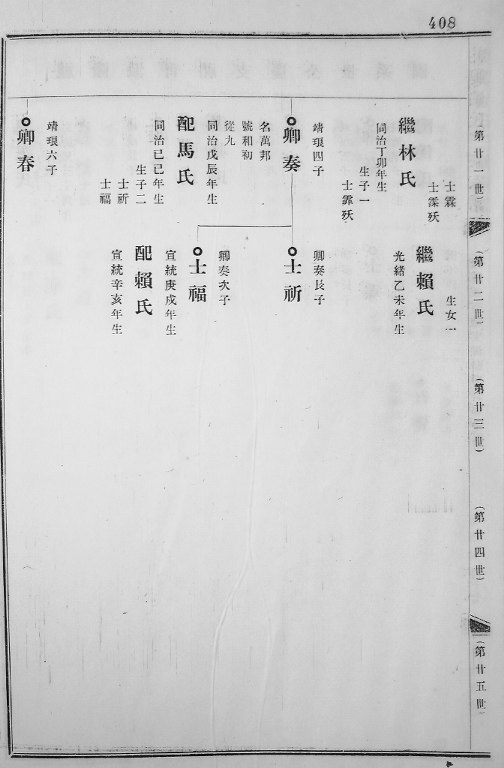 408
第廿一世
(第廿二世)
(第廿三世)
(第廿四世)
(第廿五世)
士霖
士霂殀
繼林氏
同治丁卯年生
生子一
士霏殀
靖瑔四子
卿奏
名萬邦
號和初
從九
同治戊辰年生
配馬氏
同治己巳年生
生子二
士祈
士福
靖瑔六子
卿春
生女一
繼賴氏
光緒乙未年生
卿奏長子
士祈
卿奏次子
士福
宣統庚戌年生
配賴氏
宣統辛亥年生